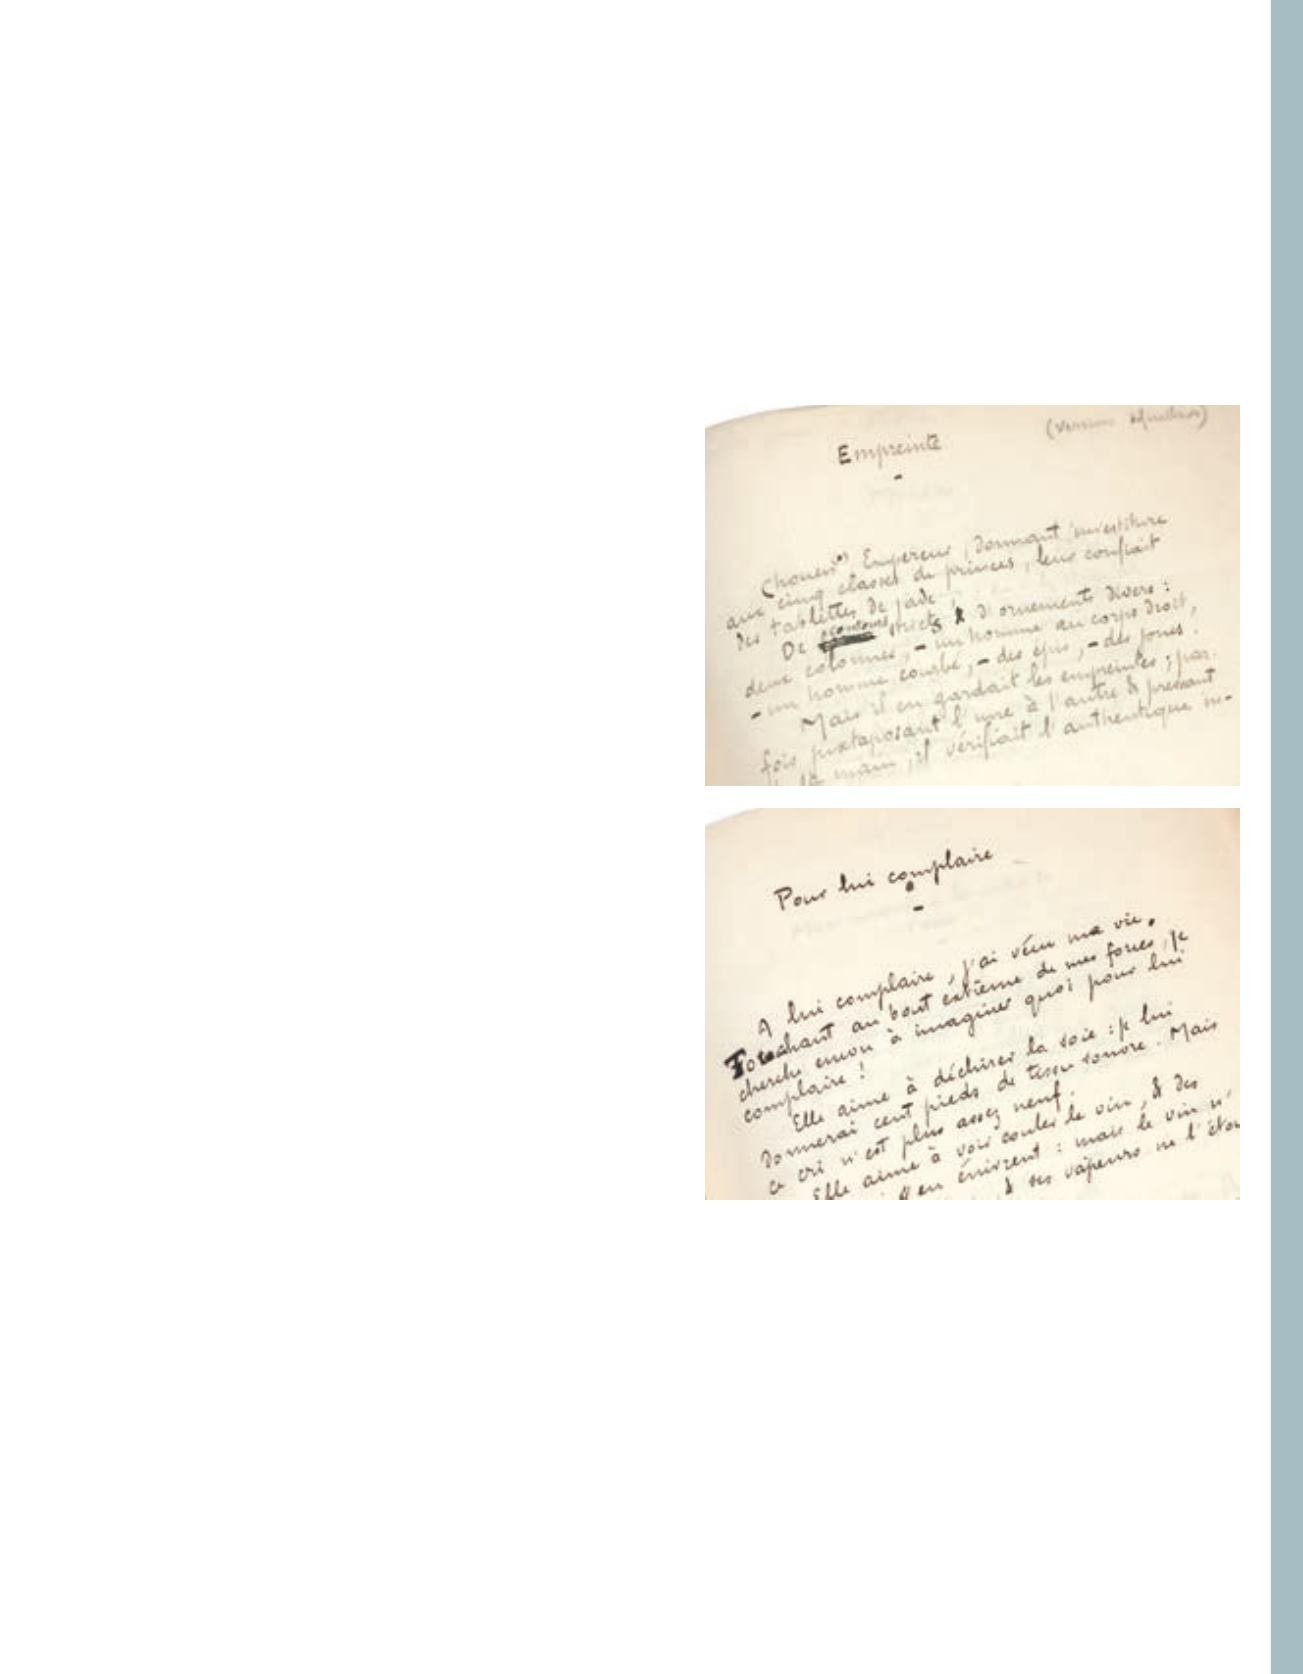 Empreinte
(version
Chouen, Empereur, donnant investiture
aux cinq classes de princes, leur confiait
des tablettes de jade
De contours stricts & d'ornements divers :
deux colonnes, - un homme au corps droit,
- un homme courbé, - des épis, - des joncs.
Mais il en gardait les empreintes ; par-
fois juxtaposant l'une à l'autre & pressant
main, il vérifiait l'authentique in-
Pour lui complaire
A lui complaire, j'ai vécu ma vie.
Touchant au bout extrême de mes forces, je
cherche encore à imaginer quoi pour lui
complaire !
Elle aime à déchirer la soie : je lui
donnerai cent pieds de tissu sonore. Mais
ce cri n'est plus assez neuf.
Elle aime à voir couler le vin, & des
s'en énivrent : mais le vin n'
& ses vapeurs ne l'étou